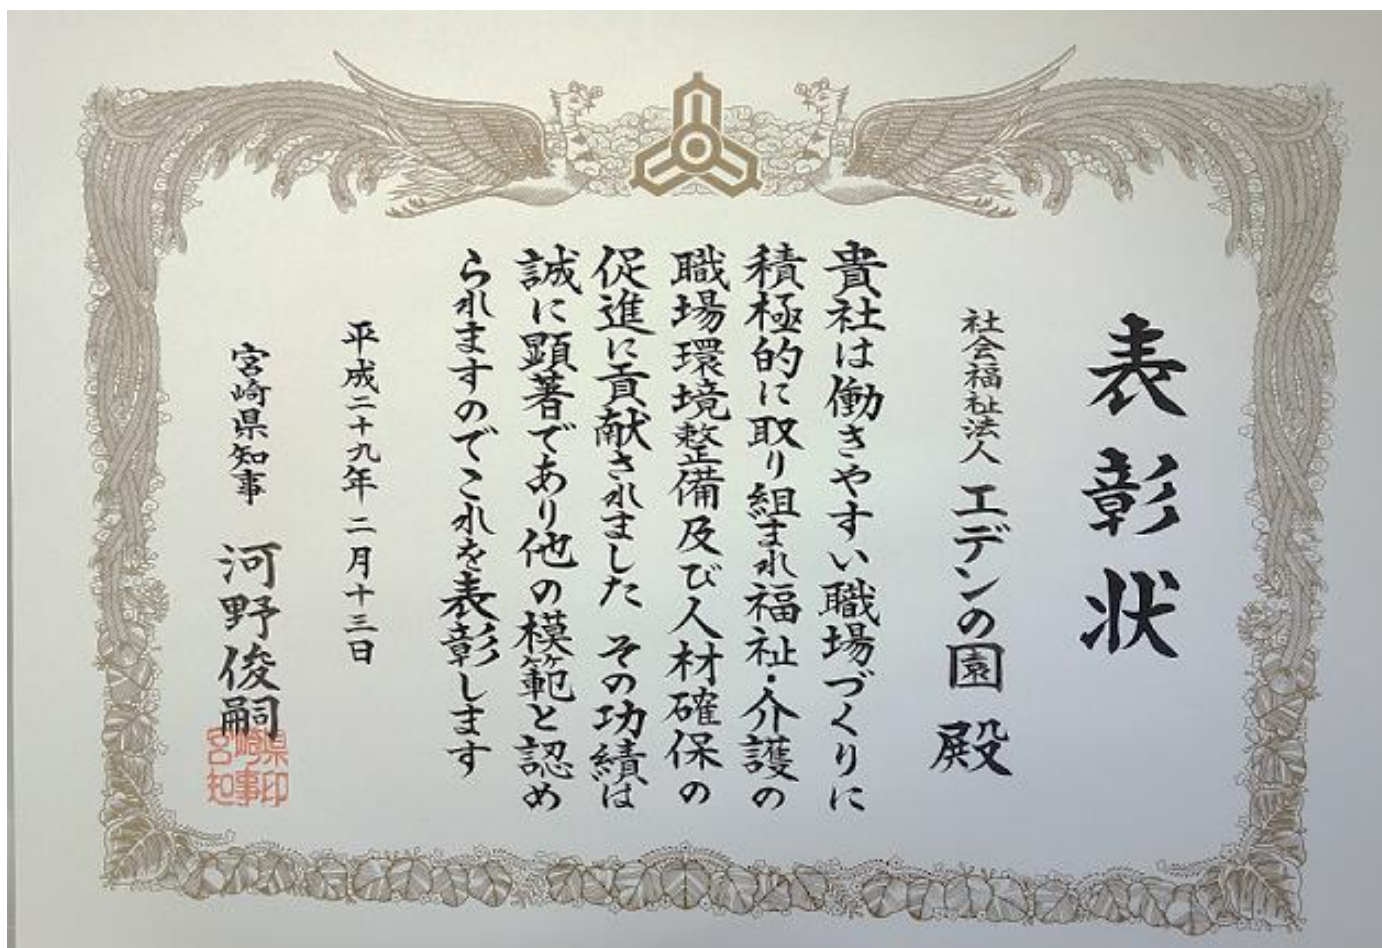 表彰状
社会福祉法人 エデンの園 殿
貴社は働きやすい職場づくりに
積極的に取り組まれ福祉・介護の
職場環境整備及び人材確保の
促進に貢献されました その功績は
誠に顕著であり他の模範と認め
られますのでこれを表彰します
平成二十九年二月十三日
宮崎県知事 河野俊嗣
宮崎県知事印